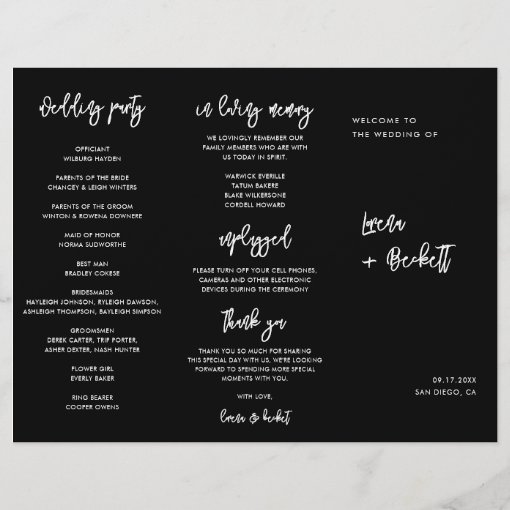 wedding party
OFFICIANT
WILBURG HAYDEN
PARENTS OF THE BRIDE
CHANCEY & LEIGH WINTERS
PARENTS OF THE GROOM
WINTON & ROWENA DOWNERE
MAID OF HONOR
NORMA SUDWORTHE
BEST MAN
BRADLEY COKESE
BRIDESMAIDS
HAYLEIGH JOHNSON, RYLEIGH DAWSON,
ASHLEIGH THOMPSON, BAYLEIGH SIMPSON
GROOMSMEN
DEREK CARTER, TRIP PORTER,
ASHER DEXTER, NASH HUNTER
FLOWER GIRL
EVERLY BAKER
RING BEARER
COOPER OWENS
in loving memory
WE LOVINGLY REMEMBER OUR
FAMILY MEMBERS WHO ARE WITH
US TODAY IN SPIRIT.
WARWICK EVERILLE
TATUM BAKERE
BLAKE WILKERSONE
CORDELL HOWARD
unplugged
PLEASE TURN OFF YOUR CELL PHONES,
CAMERAS AND OTHER ELECTRONIC
DEVICES DURING THE CEREMONY
Thank you
THANK YOU SO MUCH FOR SHARING
THIS SPECIAL DAY WITH US. WE'RE LOOKING
FORWARD TO SPENDING MORE SPECIAL
MOMENTS WITH YOU.
WITH LOVE,
lorena & becket
WELCOME TO
THE WEDDING OF
Lorena
+ Beckett
09.17.20XX
SAN DIEGO, CA